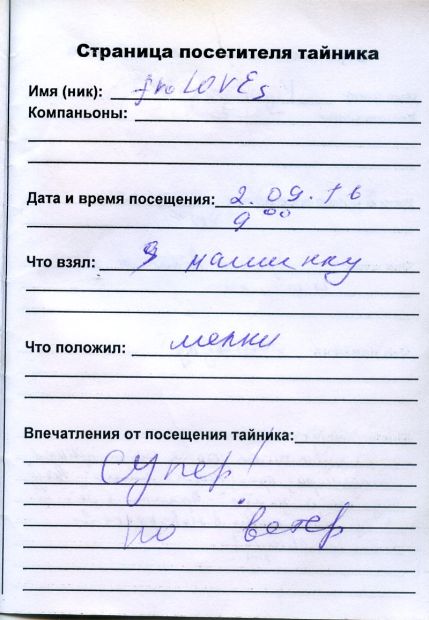 Страница посетителя тайника
Имя (ник): froLOVEs
Компаньоны:
Дата и время посещения: 2.09.16
9 00
Что взял: машинку
Что положил: мелки
Впечатления от посещения тайника:
Супер!
но ветер